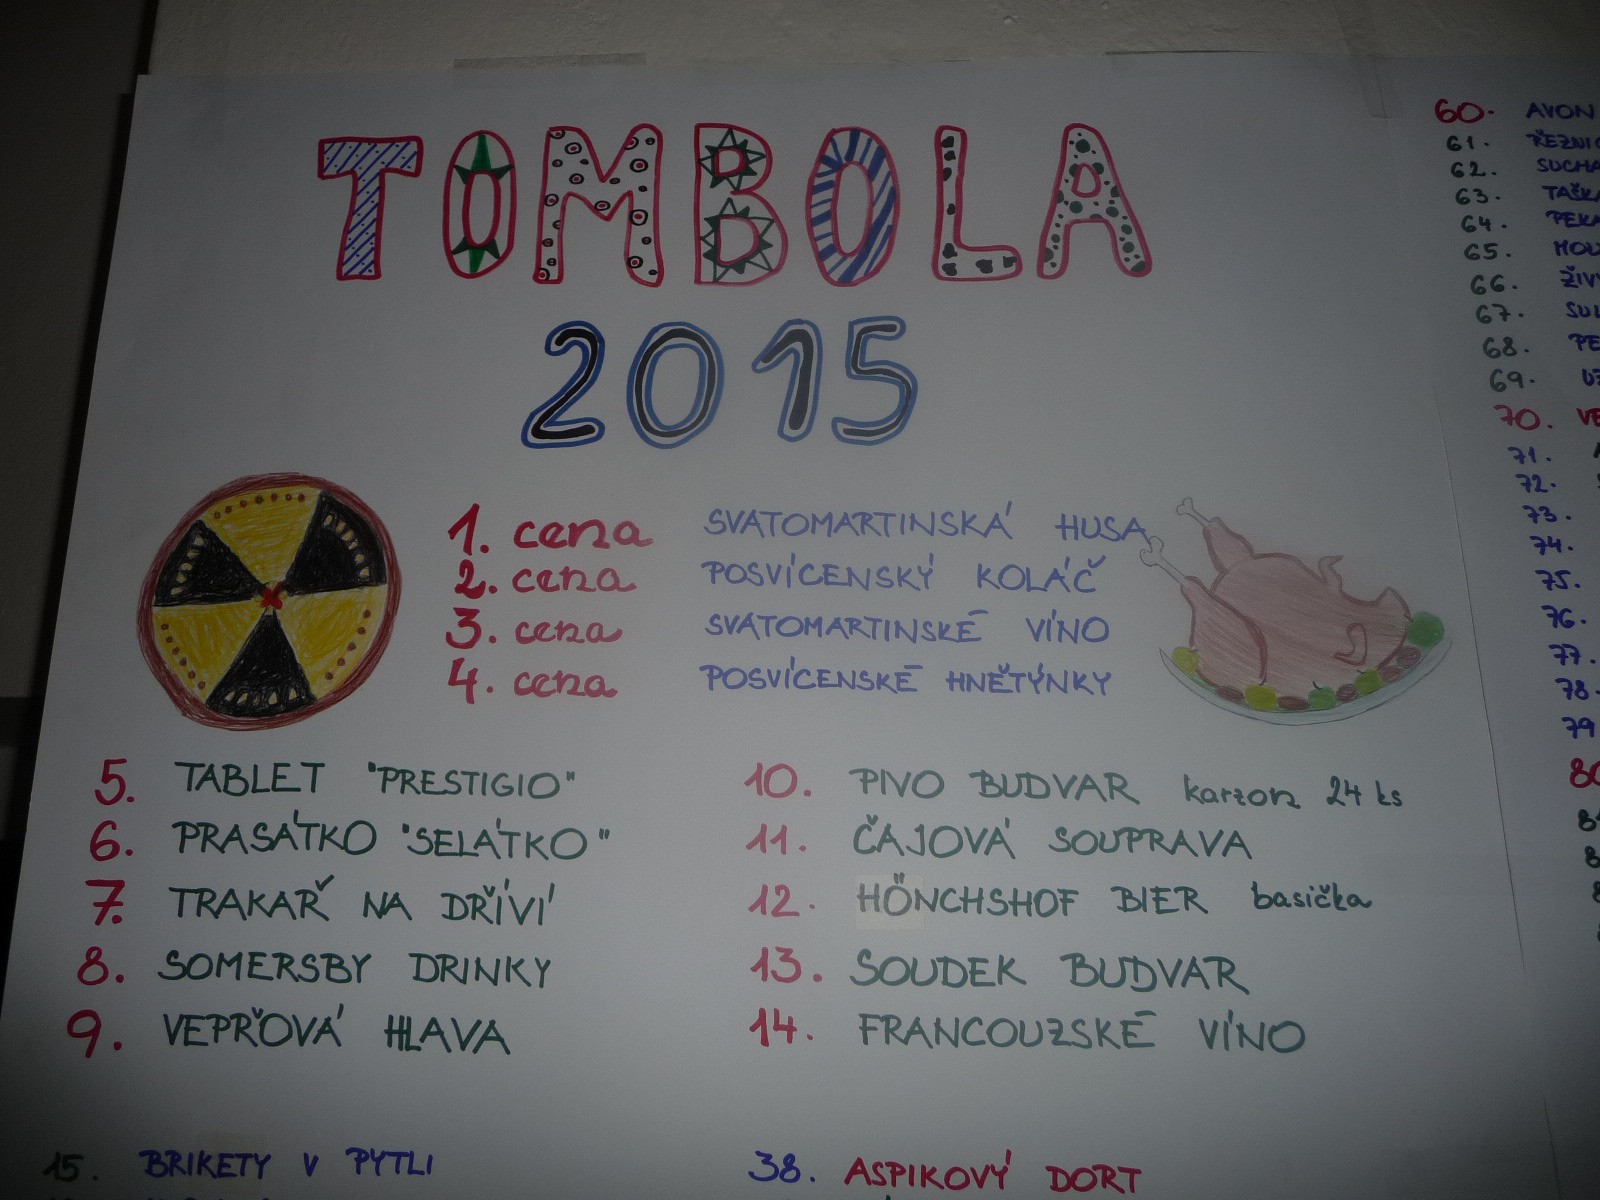 TOMBOLA
2015
1. cena SVATOMARTINSKÁ HUSA
2. cena POSVÍCENSKÝ KOLÁČ
3. cena SVATOMARTINSKÉ VÍNO
4. cena POSVÍCENSKÉ HNĚTÝNKY
5. TABLET "PRESTIGIO"
6. PRASÁTKO "SELÁTKO"
7. TRAKAŘ NA DŘÍVÍ
8. SOMERSBY DRINKY
9. VEPŘOVÁ HLAVA
10. PIVO BUDVAR karton 24 ks
11. ČAJOVÁ SOUPRAVA
12. HÖNCHSHOF BIER basička
13. SOUDEK BUDVAR
14. FRANCOUZSKÉ VÍNO
15. BRIKETY V PYTLI
38. ASPIKOVÝ DORT
60. AVON
61.
62.
63.
64.
65.
66.
67.
68.
69.
70.
71.
72.
73.
74.
75.
76.
77.
78.
79